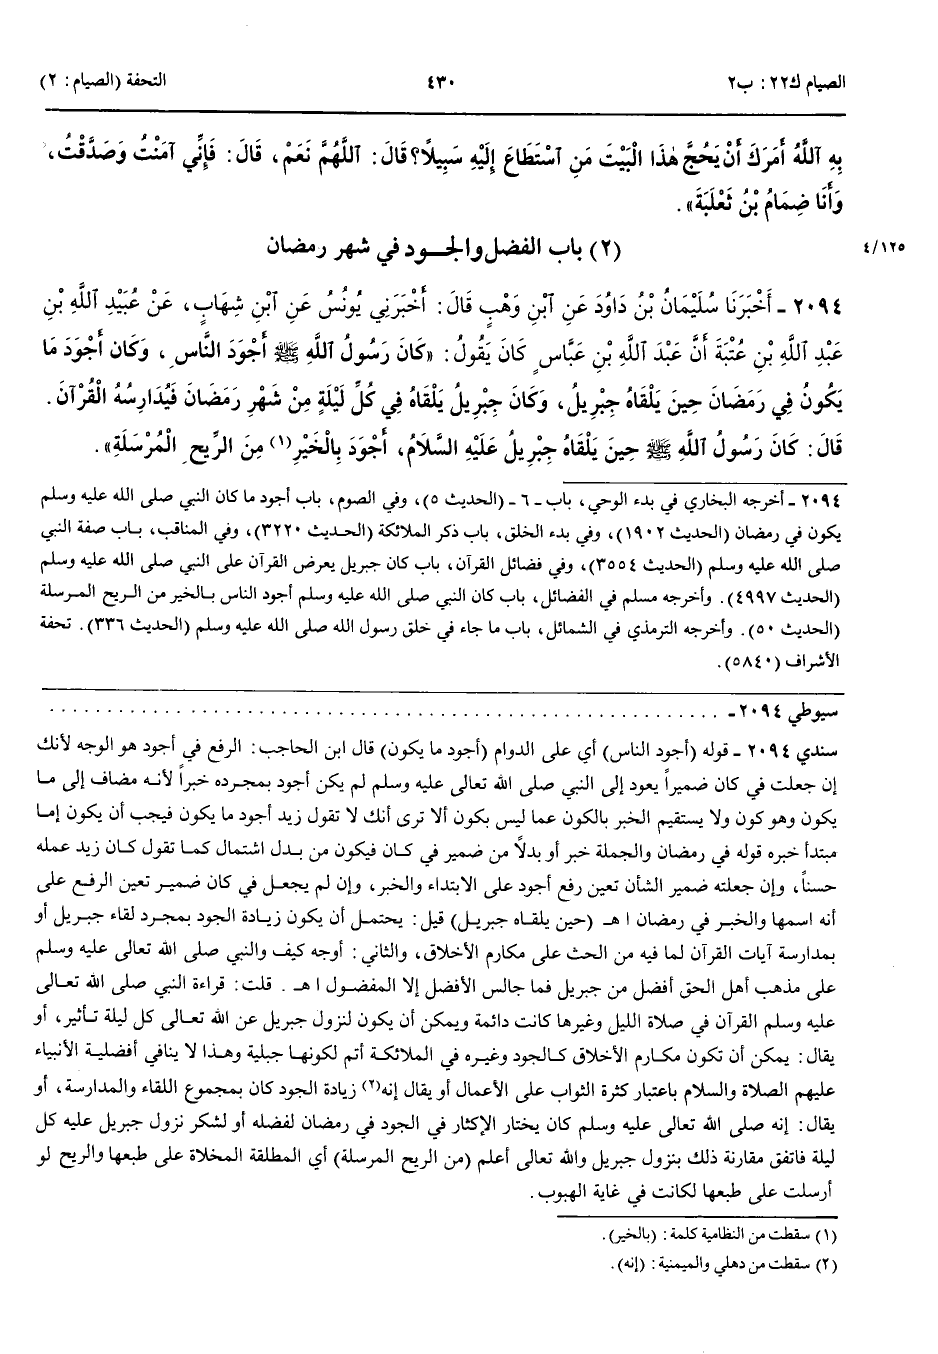 الصيام ك٢٢: ب٢ ٤٣٠ التحفة (الصيام: ٢)
بِهِ ٱللَّهُ أَمَرَكَ أَنْ يَحُجَّ هٰذَا الْبَيْتَ مَنِ ٱسْتَطَاعَ إِلَيْهِ سَبِيلًا؟ قَالَ: ٱللَّهُمَّ نَعَمْ، قَالَ: فَإِنِّي آمَنْتُ وَصَدَّقْتُ،
وَأَنَا ضِمَامُ بْنُ ثَعْلَبَةَ».
(٢) باب الفضل والجود في شهر رمضان ٤/١٢٥
٢٠٩٤ ـ أَخْبَرَنَا سُلَيْمَانُ بْنُ دَاوُدَ عَنِ ٱبْنِ وَهْبٍ قَالَ: أَخْبَرَنِي يُونُسُ عَنِ ٱبْنِ شِهَابٍ، عَنْ عُبَيْدِ ٱللَّهِ بْنِ
عَبْدِ ٱللَّهِ بْنِ عُتْبَةَ أَنَّ عَبْدَ ٱللَّهِ بْنَ عَبَّاسٍ كَانَ يَقُولُ: «كَانَ رَسُولُ ٱللَّهِ ﷺ أَجْوَدَ النَّاسِ، وَكَانَ أَجْوَدَ مَا
يَكُونُ فِي رَمَضَانَ حِينَ يَلْقَاهُ جِبْرِيلُ، وَكَانَ جِبْرِيلُ يَلْقَاهُ فِي كُلِّ لَيْلَةٍ مِنْ شَهْرِ رَمَضَانَ فَيُدَارِسُهُ الْقُرْآنَ.
قَالَ: كَانَ رَسُولُ ٱللَّهِ ﷺ حِينَ يَلْقَاهُ جِبْرِيلُ عَلَيْهِ السَّلَامُ، أَجْوَدَ بِالْخَيْرِ(١) مِنَ الرِّيحِ الْمُرْسَلَةِ».
٢٠٩٤ ـ أخرجه البخاري في بدء الوحي، باب ـ ٦ ـ (الحديث ٥)، وفي الصوم، باب أجود ما كان النبي صلى الله عليه وسلم
يكون في رمضان (الحديث ١٩٠٢)، وفي بدء الخلق، باب ذكر الملائكة (الحديث ٣٢٢٠)، وفي المناقب، باب صفة النبي
صلى الله عليه وسلم (الحديث ٣٥٥٤)، وفي فضائل القرآن، باب كان جبريل يعرض القرآن على النبي صلى الله عليه وسلم
(الحديث ٤٩٩٧). وأخرجه مسلم في الفضائل، باب كان النبي صلى الله عليه وسلم أجود الناس بالخير من الريح المرسلة
(الحديث ٥٠). وأخرجه الترمذي في الشمائل، باب ما جاء في خلق رسول الله صلى الله عليه وسلم (الحديث ٣٣٦). تحفة
الأشراف (٥٨٤٠).
سيوطي ٢٠٩٤ ـ . . . . . . . . . . . . . . . . . . . . . . . . . . . . . . . . . . . . . . . .
سندي ٢٠٩٤ ـ قوله (أجود الناس) أي على الدوام (أجود ما يكون) قال ابن الحاجب: الرفع في أجود هو الوجه لأنك
إن جعلت في كان ضميراً يعود إلى النبي صلى الله تعالى عليه وسلم لم يكن أجود بمجرده خبراً لأنه مضاف إلى ما
يكون وهو كون ولا يستقيم الخبر بالكون عما ليس بكون ألا ترى أنك لا تقول زيد أجود ما يكون فيجب أن يكون إما
مبتدأ خبره قوله في رمضان والجملة خبر أو بدلاً من ضمير في كان فيكون من بدل اشتمال كما تقول كان زيد عمله
حسناً، وإن جعلته ضمير الشأن تعين رفع أجود على الابتداء والخبر، وإن لم يجعل في كان ضمير تعين الرفع على
أنه اسمها والخبر في رمضان ا هـ (حين يلقاه جبريل) قيل: يحتمل أن يكون زيادة الجود بمجرد لقاء جبريل أو
بمدارسة آيات القرآن لما فيه من الحث على مكارم الأخلاق، والثاني: أوجه كيف والنبي صلى الله تعالى عليه وسلم
على مذهب أهل الحق أفضل من جبريل فما جالس الأفضل إلا المفضول ا هـ. قلت: قراءة النبي صلى الله تعالى
عليه وسلم القرآن في صلاة الليل وغيرها كانت دائمة ويمكن أن يكون لنزول جبريل عن الله تعالى كل ليلة تأثير، أو
يقال: يمكن أن تكون مكارم الأخلاق كالجود وغيره في الملائكة أتم لكونها جبلية وهذا لا ينافي أفضلية الأنبياء
عليهم الصلاة والسلام باعتبار كثرة الثواب على الأعمال أو يقال إنه(٢) زيادة الجود كان بمجموع اللقاء والمدارسة، أو
يقال: إنه صلى الله تعالى عليه وسلم كان يختار الإكثار في الجود في رمضان لفضله أو لشكر نزول جبريل عليه كل
ليلة فاتفق مقارنة ذلك بنزول جبريل والله تعالى أعلم (من الريح المرسلة) أي المطلقة المخلاة على طبعها والريح لو
أرسلت على طبعها لكانت في غاية الهبوب.
(١) سقطت من النظامية كلمة: (بالخير).
(٢) سقطت من دهلي والميمنية: (إنه).